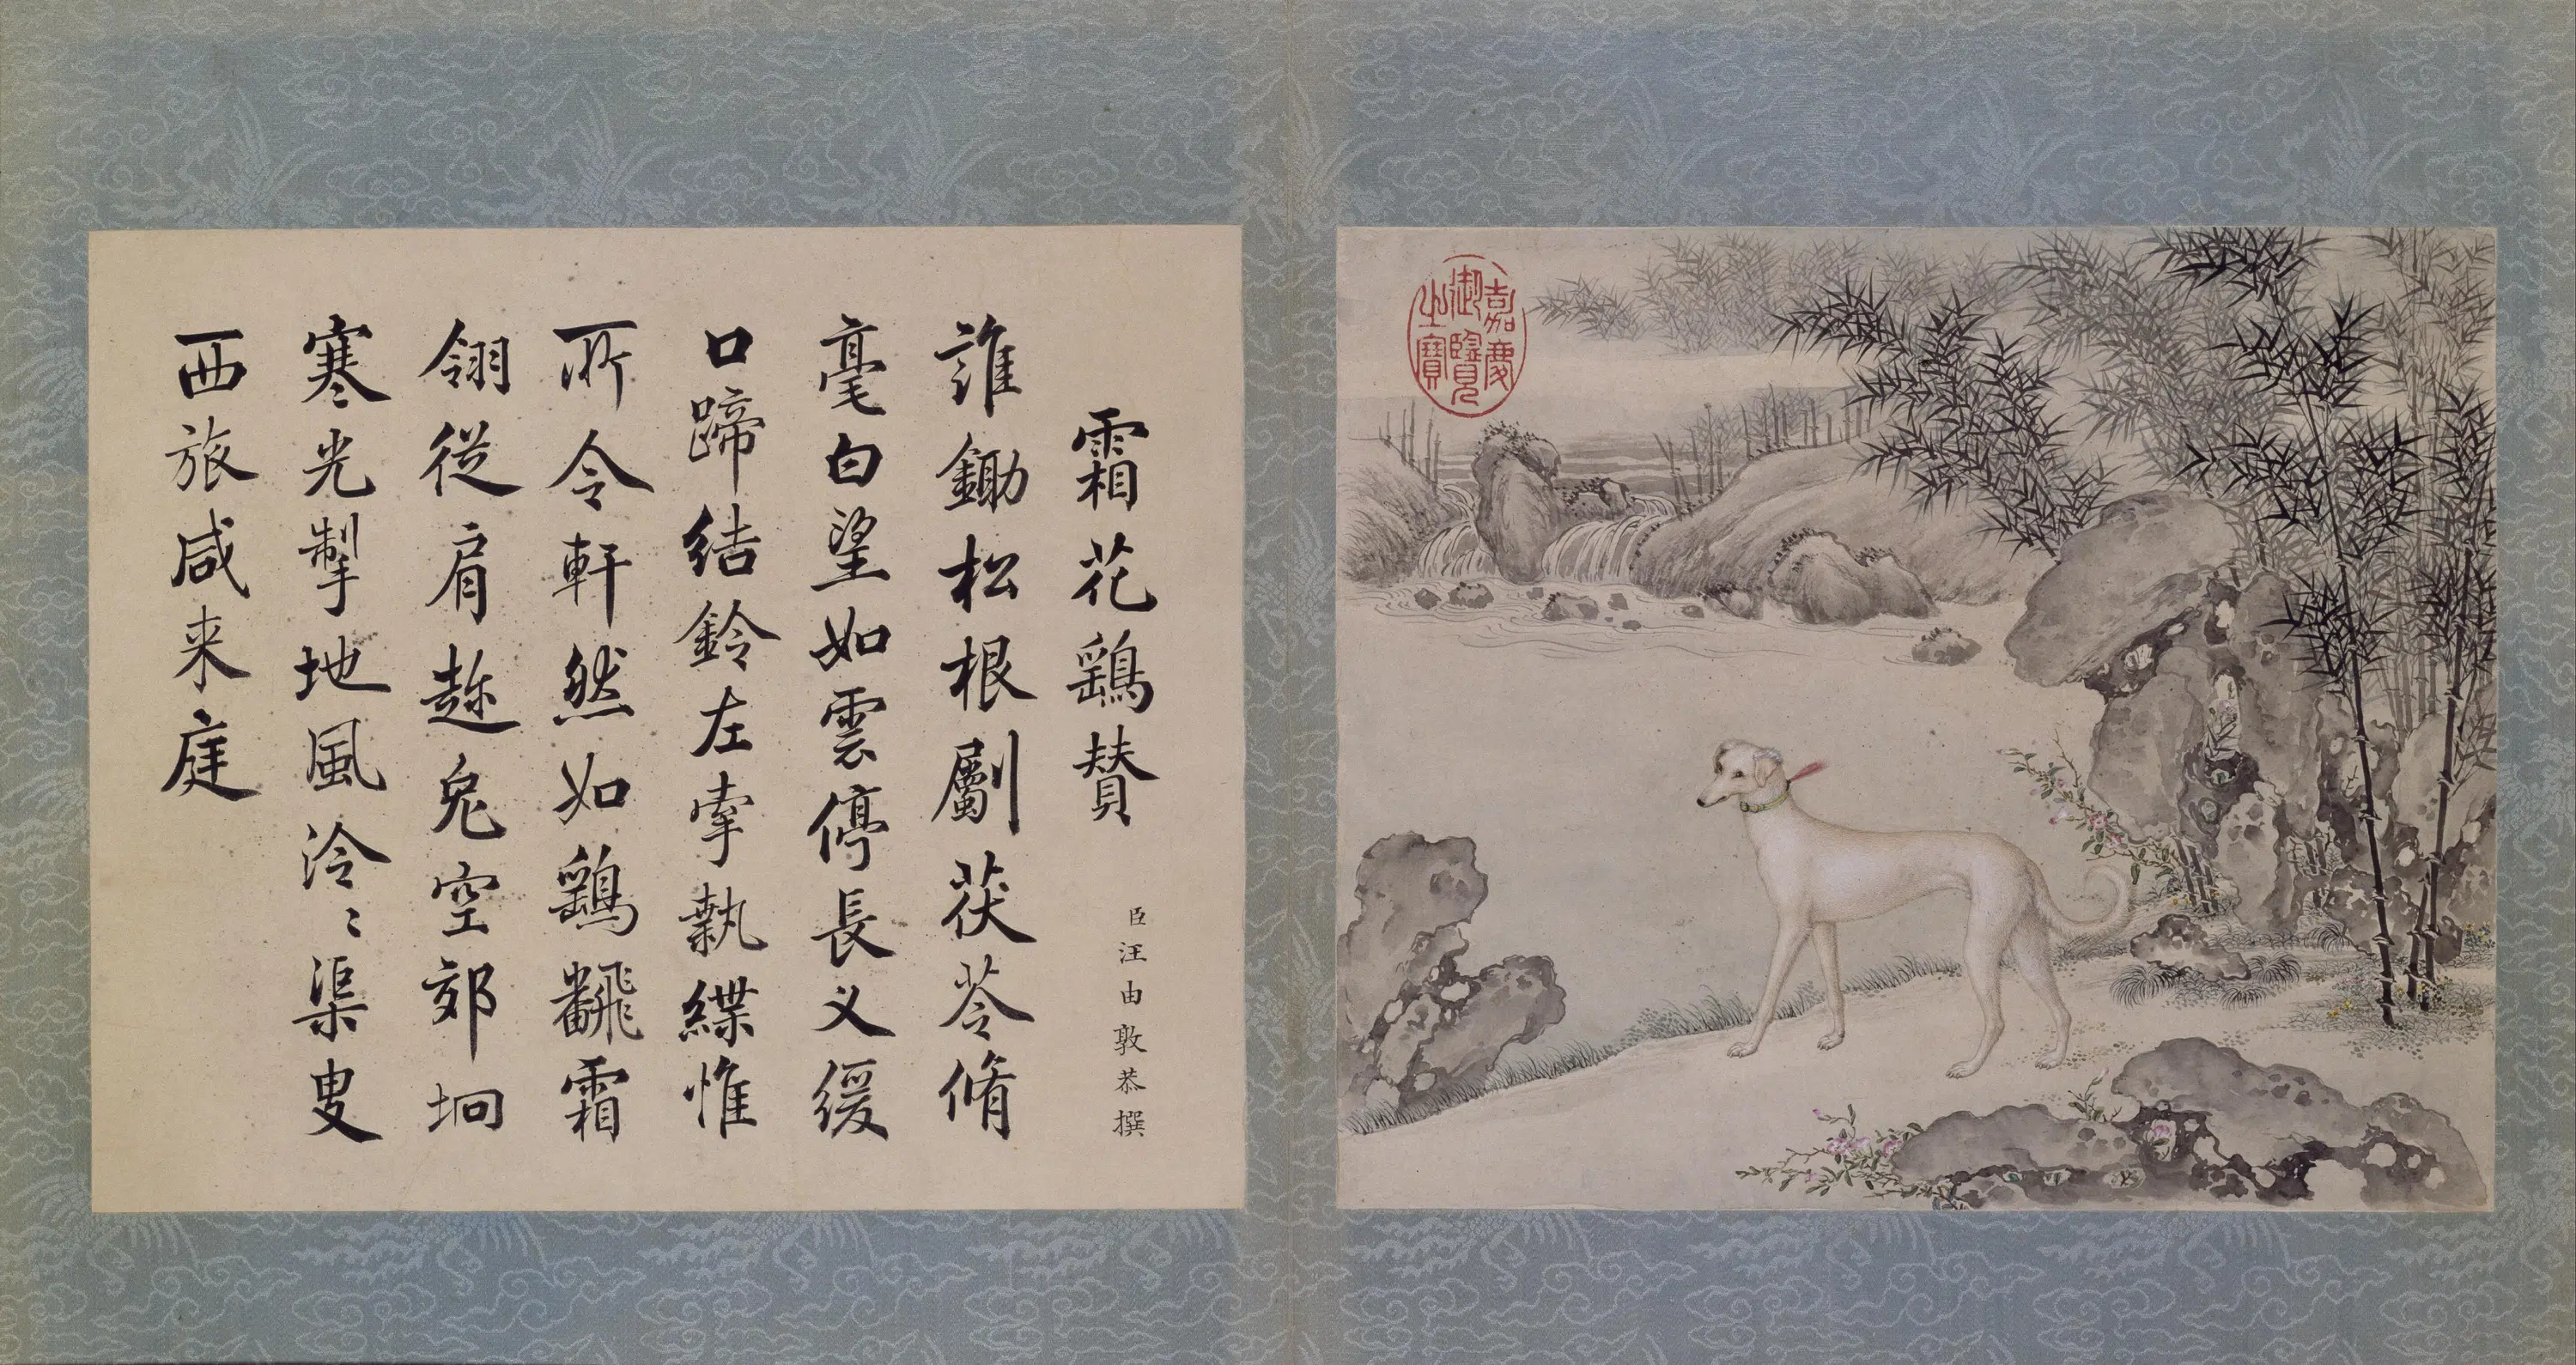 霜花鷂賛
臣汪由敦恭撰
誰鋤松根劚茯苓脩
毫白望如雲停長义緩
口蹄結鈴左牽執緤惟
所令軒然如鷂飜霜
翎従肩趂兔空郊坰
寒光掣地風泠〻渠叟
西旅咸来庭
嘉慶御覽之寶